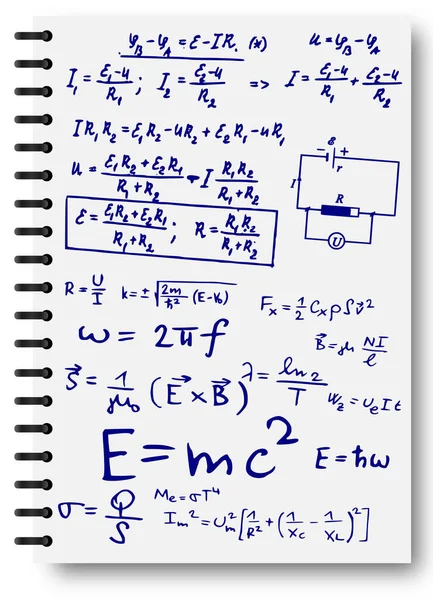 φB − φA = ℰ − IR. (*)   u = φB − φA
I₁ = (ℰ₁−u)/R₁ ; I₂ = (ℰ₂−u)/R₂ => I = (ℰ₁−u)/R₁ + (ℰ₂−u)/R₂
IR₁R₂ = ℰ₁R₂ − uR₂ + ℰ₂R₁ − uR₁
u = (ℰ₁R₂ + ℰ₂R₁)/(R₁+R₂) − I R₁R₂/(R₁+R₂)
ℰ = (ℰ₁R₂ + ℰ₂R₁)/(R₁+R₂) ; R = R₁R₂/(R₁+R₂)
ℰ
− +
r
I
R
U
R = U/I   k = ±√(2m/ħ² (E−V₀))   Fₓ = ½ CₓρSv²
ω = 2πf   B⃗ = μ NI/l
S⃗ = 1/μ₀ (E⃗ × B⃗)   λ = ln2/T   W₂ = UₑIt
E = mc²   E = ħω
σ = Q/S   Me = σT⁴
Im² = Um² [1/R² + (1/XC − 1/XL)²]